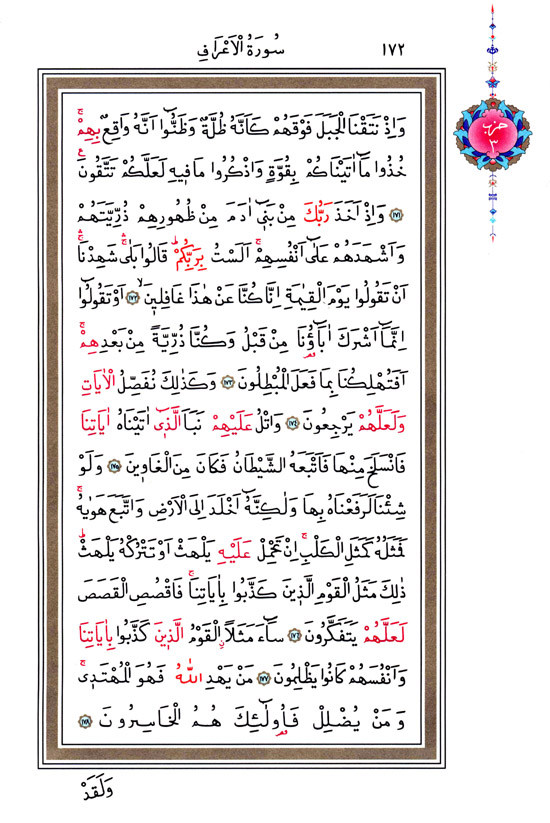 ١٧٢
سُورَةُ الْاَعْرَافِ
حزب
٣
وَاِذْ نَتَقْنَا الْجَبَلَ فَوْقَهُمْ كَاَنَّهُ ظُلَّةٌ وَظَنُّٓوا اَنَّهُ وَاقِعٌ بِهِمْۚ
خُذُوا مَٓا اٰتَيْنَاكُمْ بِقُوَّةٍ وَاذْكُرُوا مَا فِيهِ لَعَلَّكُمْ تَتَّقُونَ۟
﴿١٧١﴾ وَاِذْ اَخَذَ رَبُّكَ مِنْ بَنِٓي اٰدَمَ مِنْ ظُهُورِهِمْ ذُرِّيَّتَهُمْ
وَاَشْهَدَهُمْ عَلٰٓى اَنْفُسِهِمْۚ اَلَسْتُ بِرَبِّكُمْۜ قَالُوا بَلٰىۚۛ شَهِدْنَاۚۛ
اَنْ تَقُولُوا يَوْمَ الْقِيٰمَةِ اِنَّا كُنَّا عَنْ هٰذَا غَافِلِينَۙ ﴿١٧٢﴾ اَوْ تَقُولُٓوا
اِنَّمَٓا اَشْرَكَ اٰبَٓاؤُ۬نَا مِنْ قَبْلُ وَكُنَّا ذُرِّيَّةً مِنْ بَعْدِهِمْۚ
اَفَتُهْلِكُنَا بِمَا فَعَلَ الْمُبْطِلُونَ ﴿١٧٣﴾ وَكَذٰلِكَ نُفَصِّلُ الْاٰيَاتِ
وَلَعَلَّهُمْ يَرْجِعُونَ ﴿١٧٤﴾ وَاتْلُ عَلَيْهِمْ نَبَاَ الَّذِٓي اٰتَيْنَاهُ اٰيَاتِنَا
فَانْسَلَخَ مِنْهَا فَاَتْبَعَهُ الشَّيْطَانُ فَكَانَ مِنَ الْغَاوِينَ ﴿١٧٥﴾ وَلَوْ
شِئْنَا لَرَفَعْنَاهُ بِهَا وَلٰكِنَّهُٓ اَخْلَدَ اِلَى الْاَرْضِ وَاتَّبَعَ هَوٰيهُۚ
فَمَثَلُهُ كَمَثَلِ الْكَلْبِۚ اِنْ تَحْمِلْ عَلَيْهِ يَلْهَثْ اَوْ تَتْرُكْهُ يَلْهَثْۜ
ذٰلِكَ مَثَلُ الْقَوْمِ الَّذِينَ كَذَّبُوا بِاٰيَاتِنَاۚ فَاقْصُصِ الْقَصَصَ
لَعَلَّهُمْ يَتَفَكَّرُونَ ﴿١٧٦﴾ سَٓاءَ مَثَلًاۨ الْقَوْمُ الَّذِينَ كَذَّبُوا بِاٰيَاتِنَا
وَاَنْفُسَهُمْ كَانُوا يَظْلِمُونَ ﴿١٧٧﴾ مَنْ يَهْدِ اللّٰهُ فَهُوَ الْمُهْتَدِيۚ
وَمَنْ يُضْلِلْ فَاُو۬لٰٓئِكَ هُمُ الْخَاسِرُونَ ﴿١٧٨﴾
وَلَقَدْ